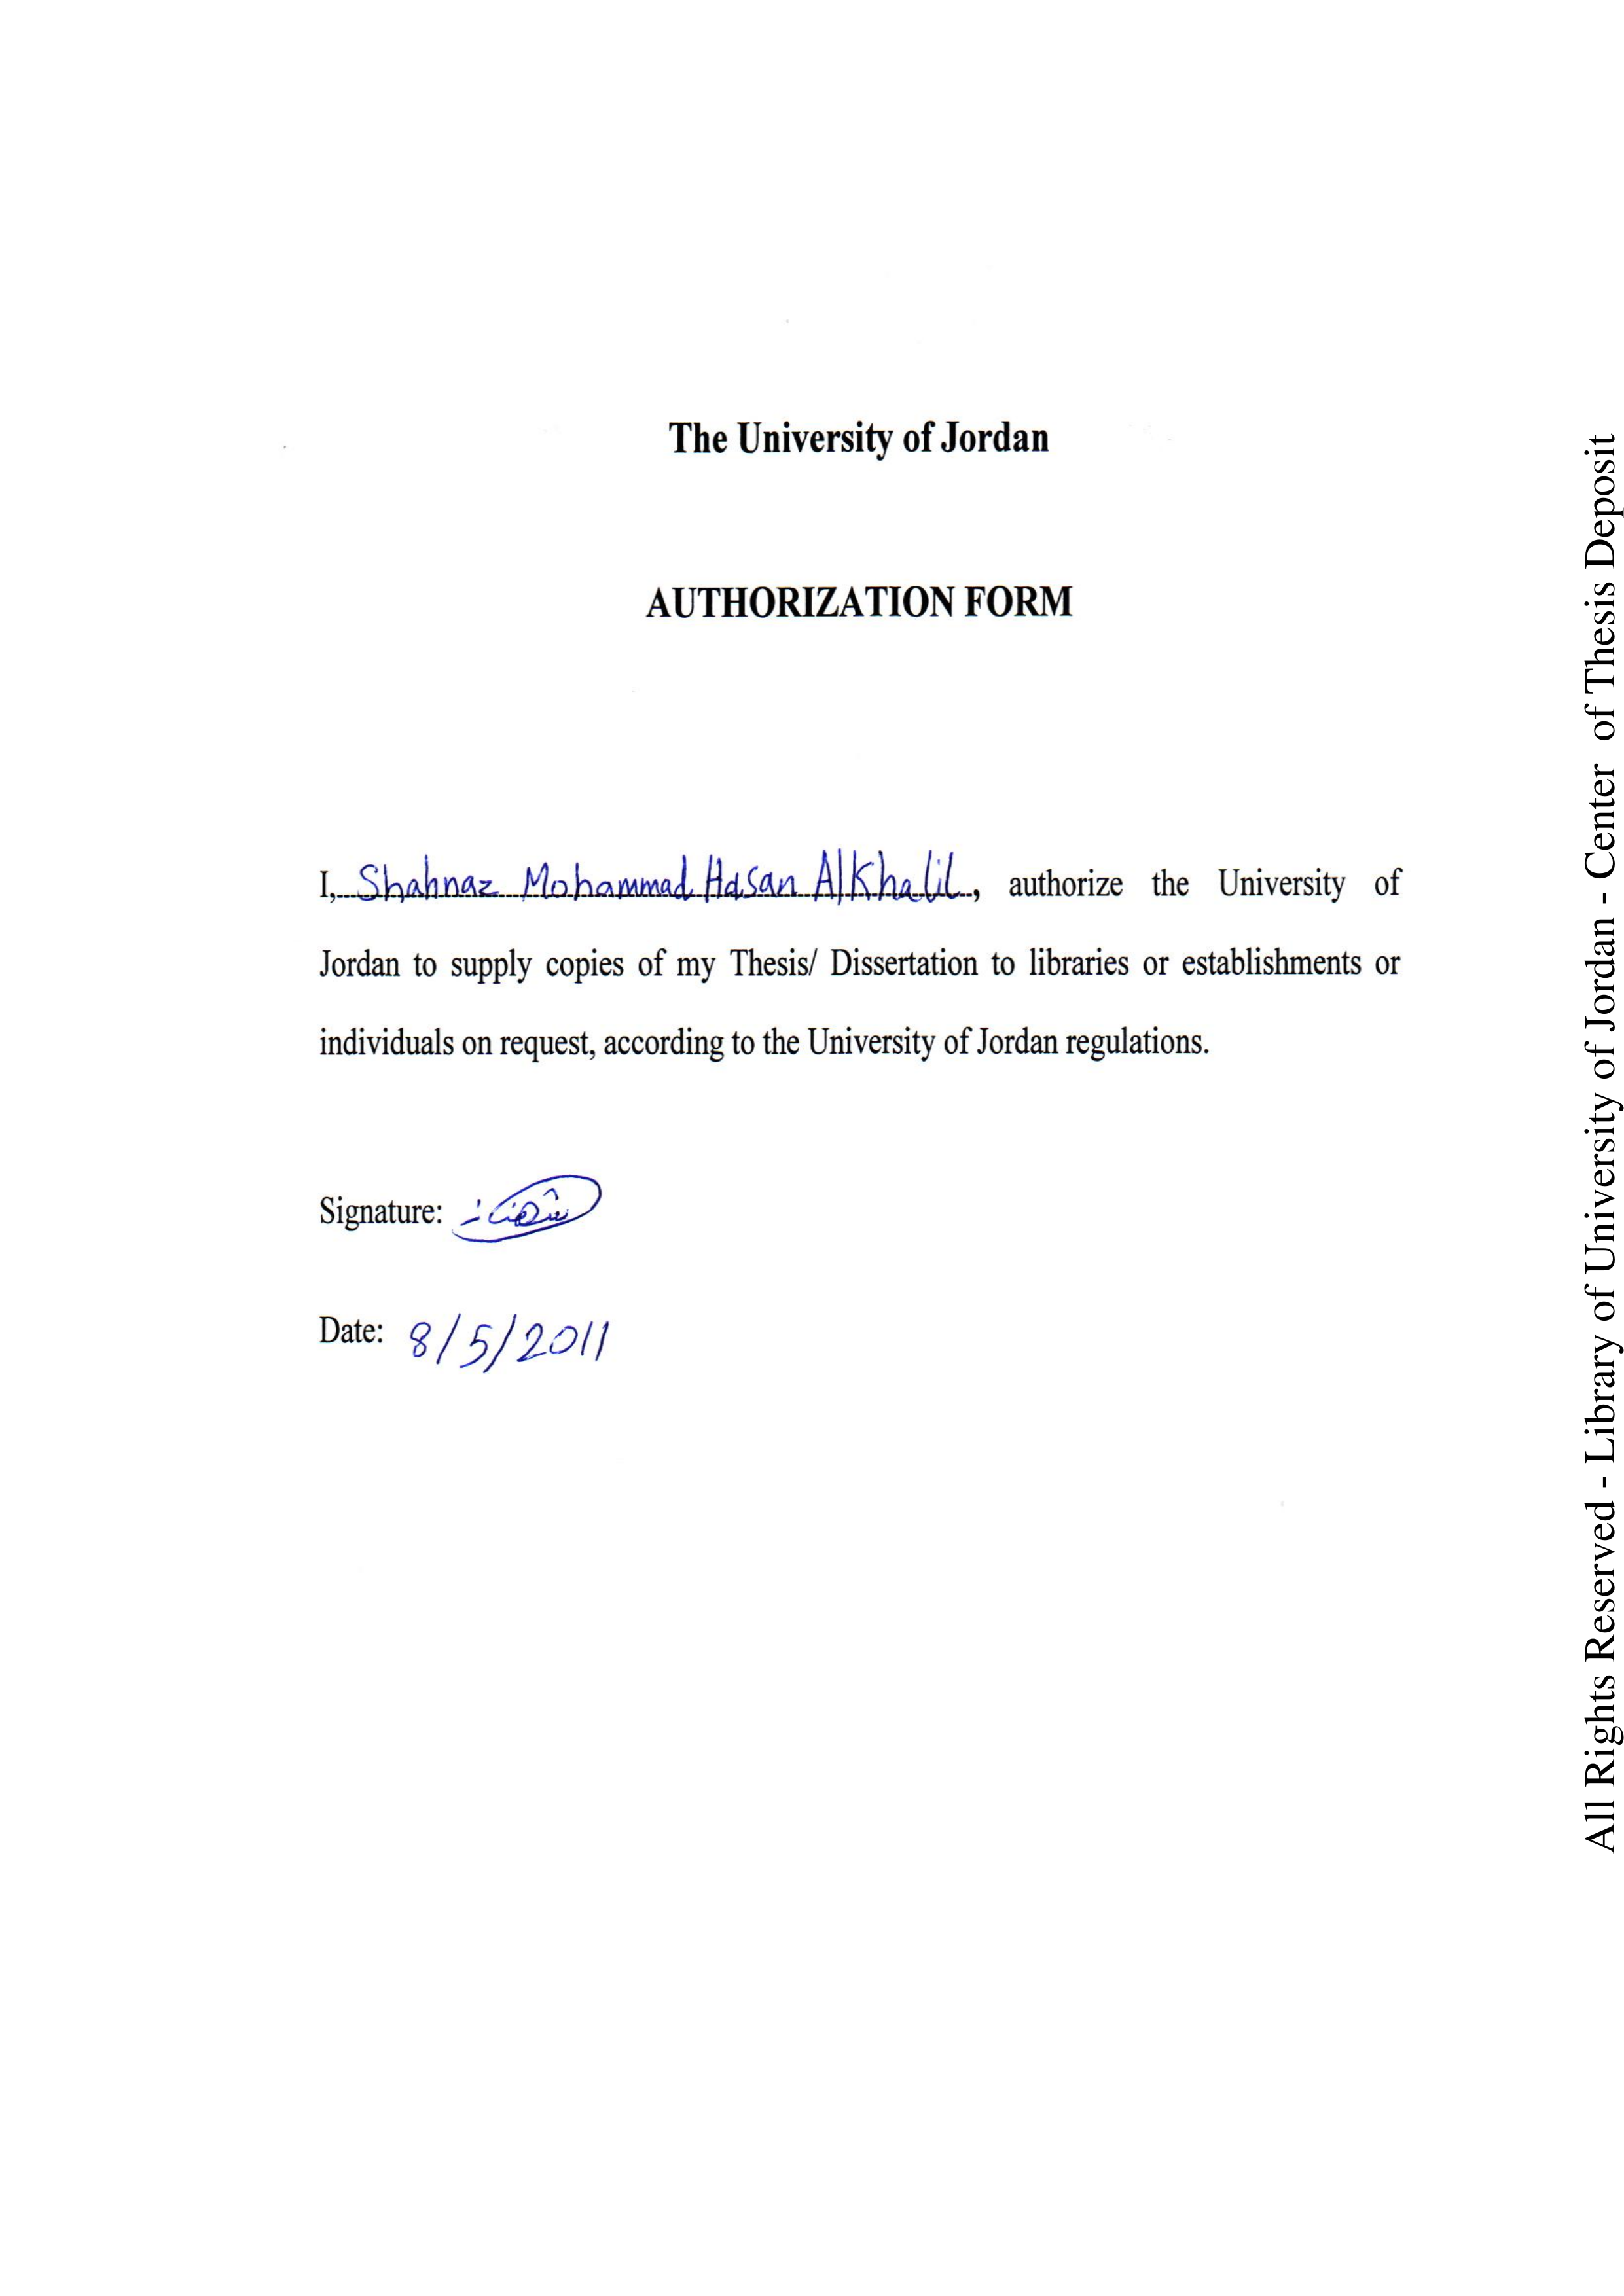 The University of Jordan
AUTHORIZATION FORM
I, Shahnaz Mohammad Hasan AlKhalil, authorize the University of
Jordan to supply copies of my Thesis/ Dissertation to libraries or establishments or
individuals on request, according to the University of Jordan regulations.
Signature:
Date: 8/5/2011
All Rights Reserved - Library of University of Jordan - Center of Thesis Deposit